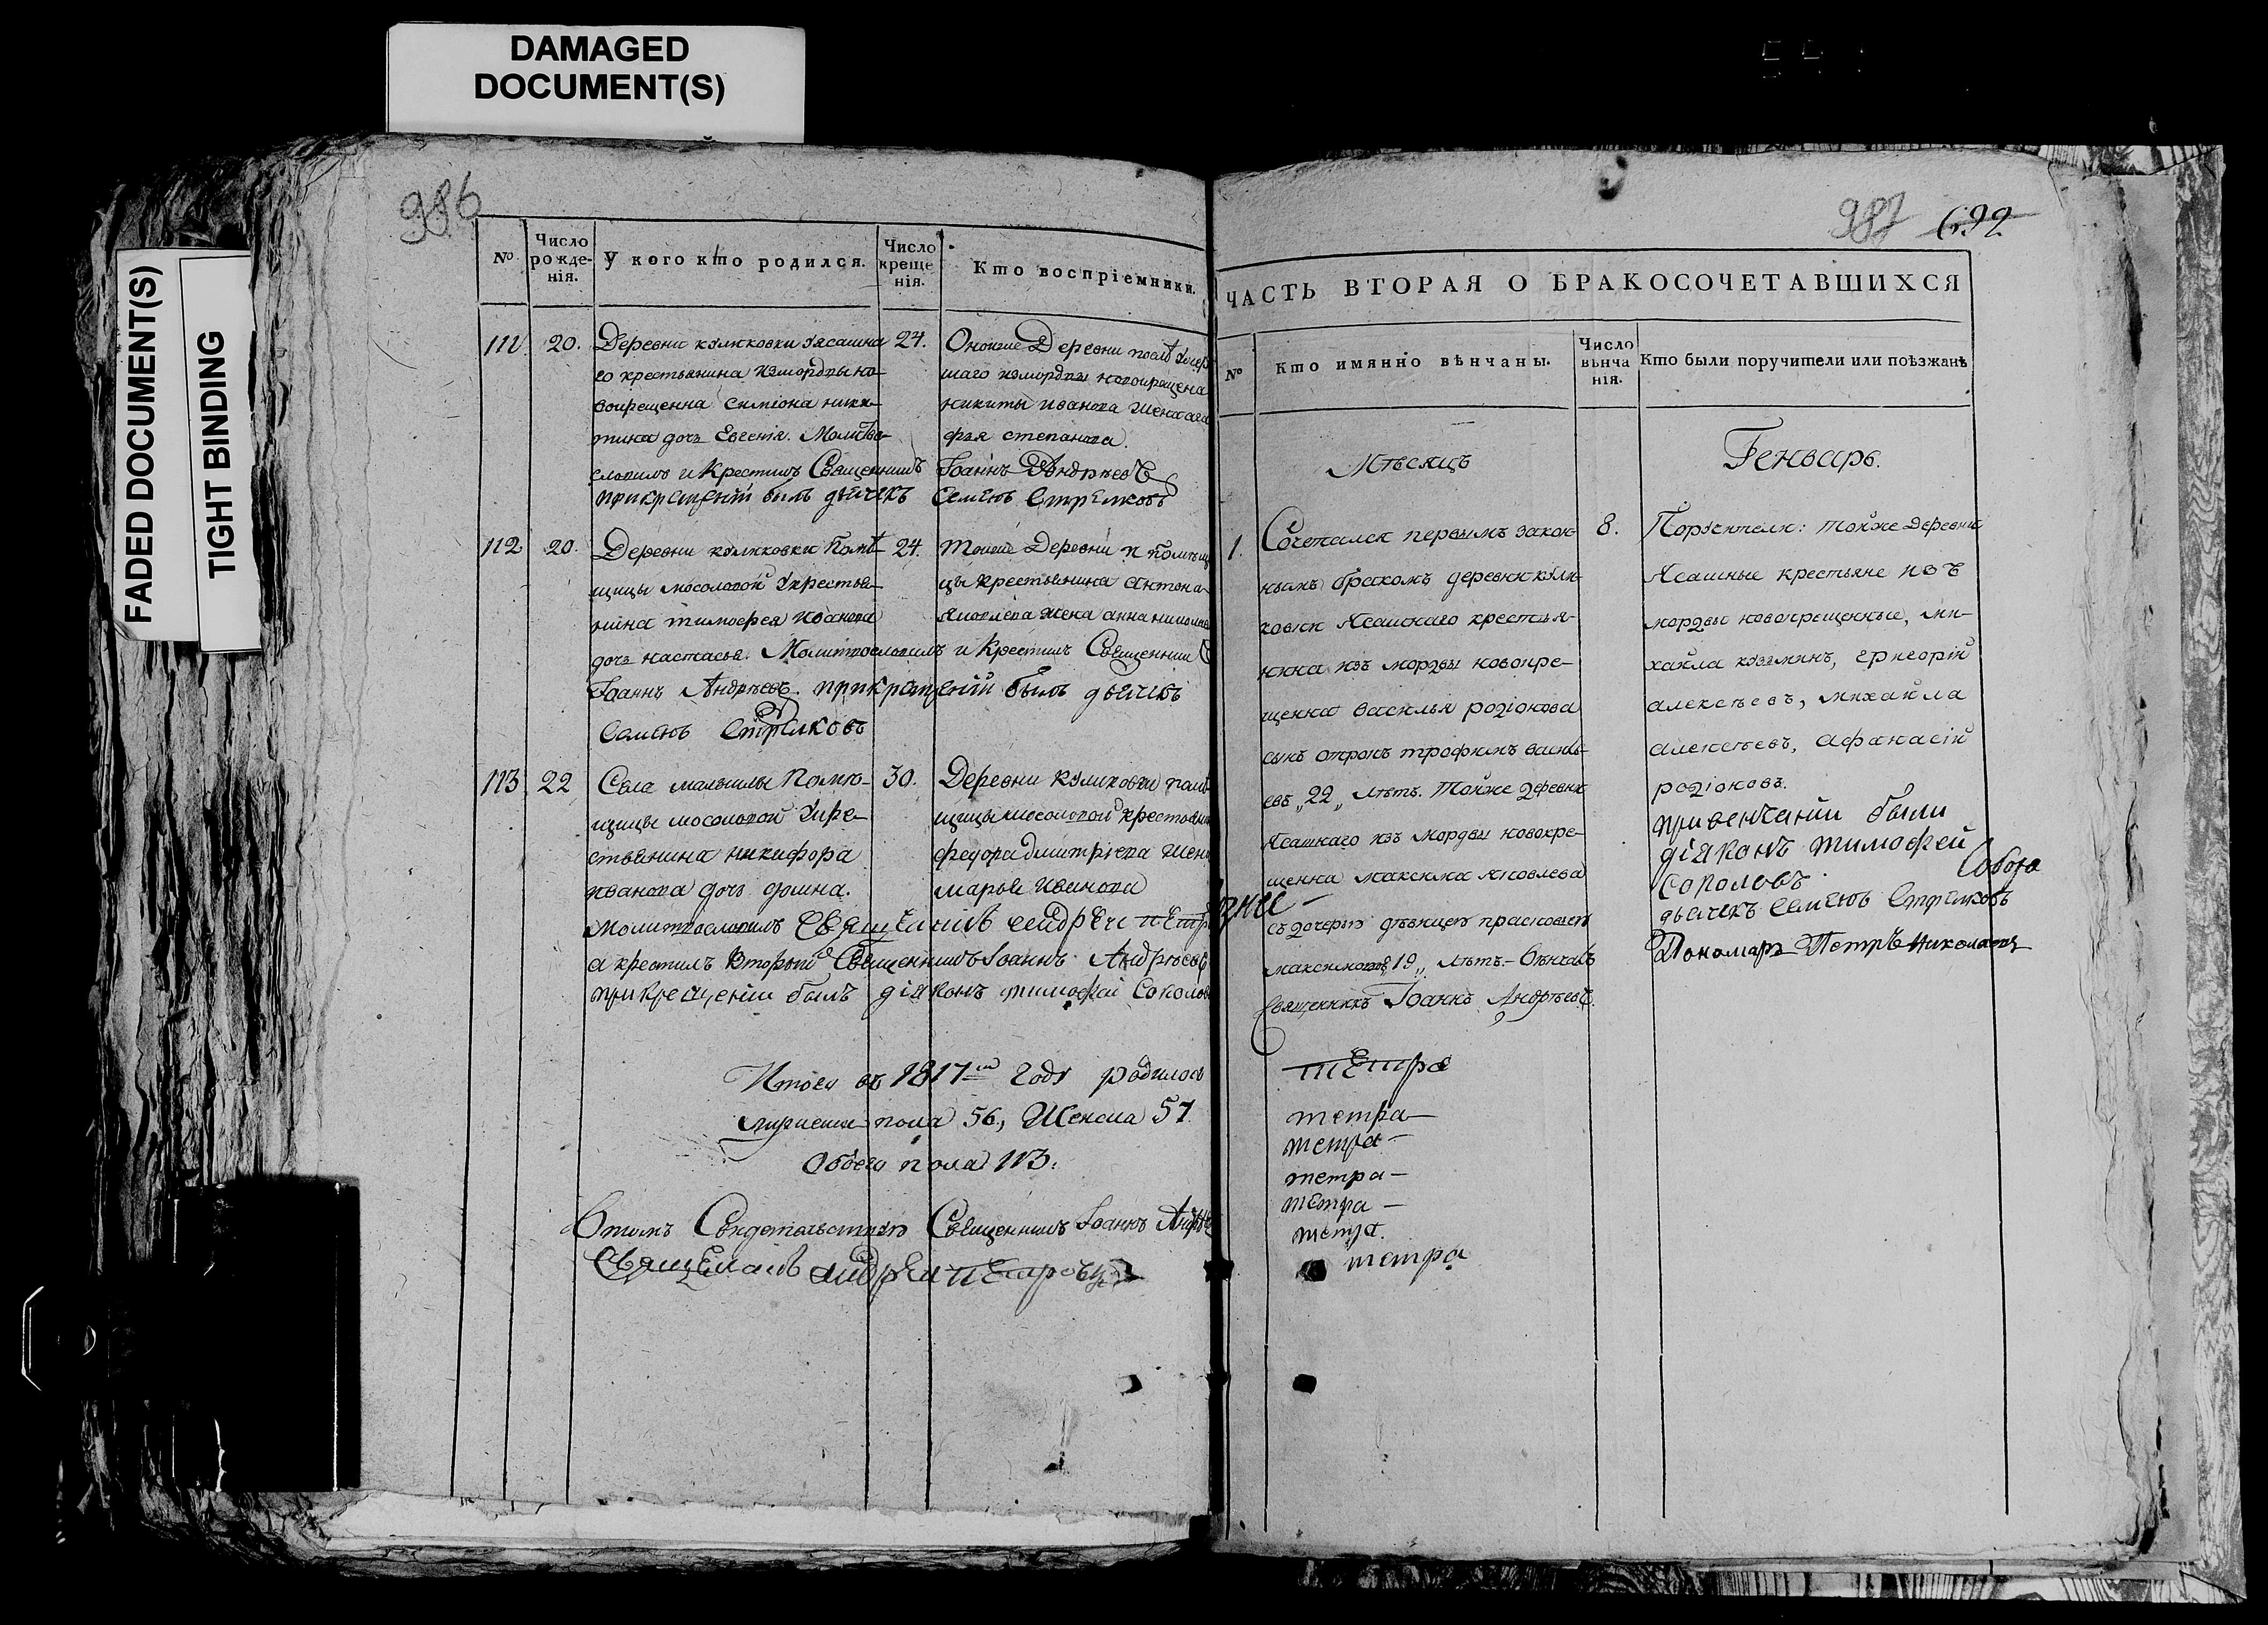 DAMAGED
DOCUMENT(S)
FADED DOCUMENT(S)
TIGHT BINDING
986
№
Число рожденія.
У кого кто родился.
Число крещенія.
Кто воспріемники.
111
20.
Деревни куликовки Ясашна
го крестьянина измордвы но
вокрещенна симіона ники
тина дочь Евгенія. Молитво
словилъ и Крестилъ Священникъ Іоаннъ Андрѣевъ
прикрещеніи былъ дьячекъ Семенъ Стрелковъ
24.
Оноиже Деревни послѣ умер
шаго измордвы новокрещена
никиты иванова жена ага
фья степанова.
112
20.
Деревни куликовки Помѣ
щицы мосоловой Укрестья
нина тимофея иванова
дочь настасья. Молитвословилъ и Крестилъ Священникъ
Іоаннъ Андрѣевъ. прикрещеніи былъ дьячекъ
Семенъ Стрелковъ
24.
Тоиже Деревни помѣщи
цы крестьянина антона
яковлева жена анна никола
113
22
Села Помѣ
щицы мосоловой Укре
стьянина никифора
иванова дочь домна.
30.
Деревни куликовки помѣ
щицы мосоловой крестьянин
федора дмитріева жена
марья иванова
молитвословилъ Священникъ андрей петр
а крестилъ второй Священникъ Іоаннъ Андрѣевъ
прикрещеніи былъ діяконъ тимофей Соколов
Итого въ 1817мъ году родилось
мужеска пола 56, Женска 57
Обоего пола 113.
Втомъ Свидетельствую Священникъ Іоаннъ Андрѣ
Священникъ андрей петровъ
987 692
ЧАСТЬ ВТОРАЯ О БРАКОСОЧЕТАВШИХСЯ
№
Кто имянно вѣнчаны.
Число вѣнчанія.
Кто были поручители или поѣзжанѣ
Мѣсяцъ
Генварь.
1.
Сочетался первымъ закон
нымъ бракомъ деревни кули
ковки Ясашнаго крестья
нина изъ мордвы новокре
щенна василья родіонова
сынъ отрокъ трофимъ василь
евъ „22„ лѣтъ. Тойже деревни
Ясашнаго изъ мордвы новокре
щенна максима яковлева
съ дочерью дѣвицею прасковьею
максимовой „19„ лѣтъ. Вѣнчалъ
Священникъ Іоаннъ Андрѣевъ.
8.
Поручители: тойже деревни
Ясашные крестьяне изъ
мордвы новокрещенные, ми
хайла кузминъ, григорій
алексѣевъ, михайла
алексѣевъ, афанасій
родіоновъ.
привенчаніи были
діяконъ тимофей
Соколовъ.
дьячекъ Семенъ Стрелковъ
Пономарь Петръ Николаевъ
петра
петра
петра
петра
петра
петра
петра